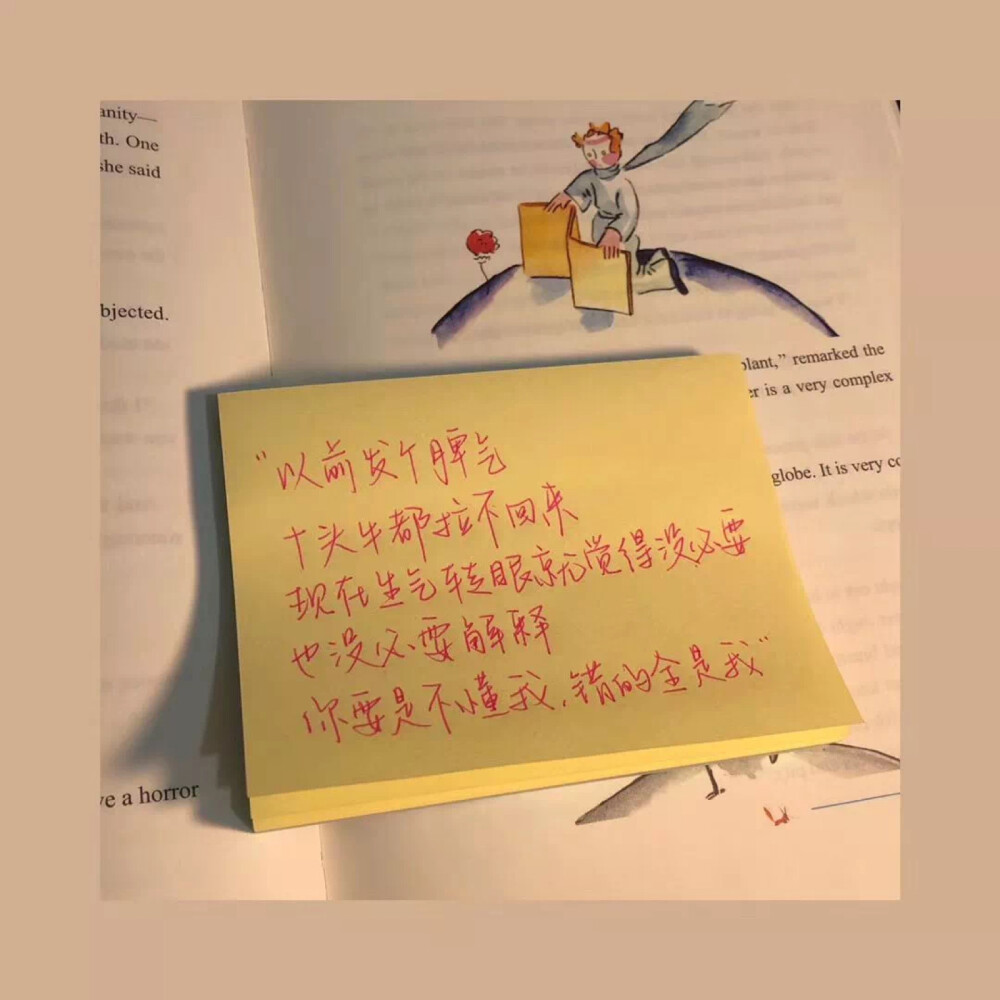 anity—
th. One
she said
bjected.
ve a horror
plant,” remarked the
er is a very complex
globe. It is very co
“以前发个脾气
十头牛都拉不回来
现在生气转眼就觉得没必要
也没必要解释
你要是不懂我,错的全是我”